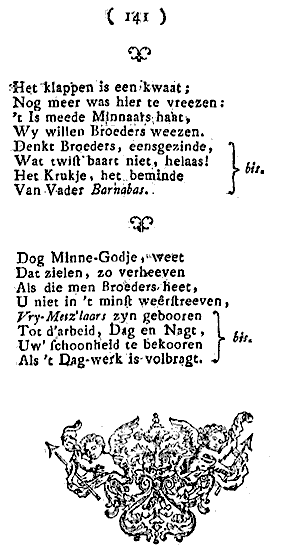 ( 141 )
Het klappen is een kwaat;
Nog meer was hier te vreezen:
't Is meede Minnaars haat,
Wy willen Broeders weezen.
Denkt Broeders, eensgezinde,
Wat twiſt baart niet, helaas!
Het Krukje, het beminde
Van Vader Barnabas.
bis.
Dog Minne-Godje, weet
Dat zielen, zo verheeven
Als die men Broeders heet,
U niet in 't minſt weêrſtreeven,
Vry-Metz'laars zyn gebooren
Tot d'arbeid, Dag en Nagt,
Uw' ſchoonheid te bekooren
Als 't Dag-werk is volbragt.
bis.